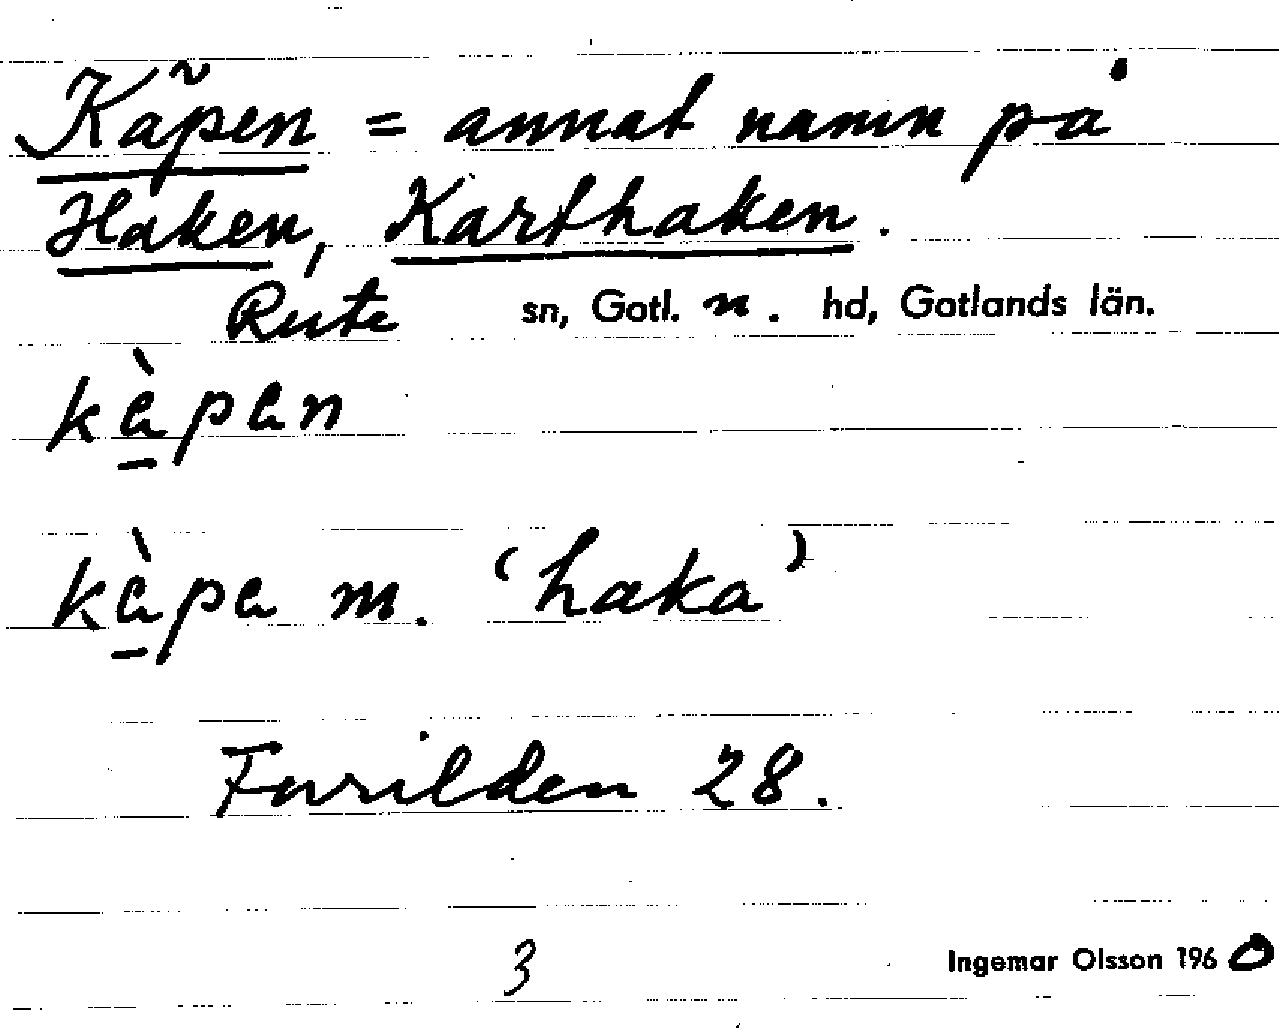 Kãpen = annat namn på
Haken, Karthaken.
Rute sn, Gotl. n. hd, Gotlands län.
kàpan
kàpa m. 'haka'
Furilden 28.
3
Ingemar Olsson 1960